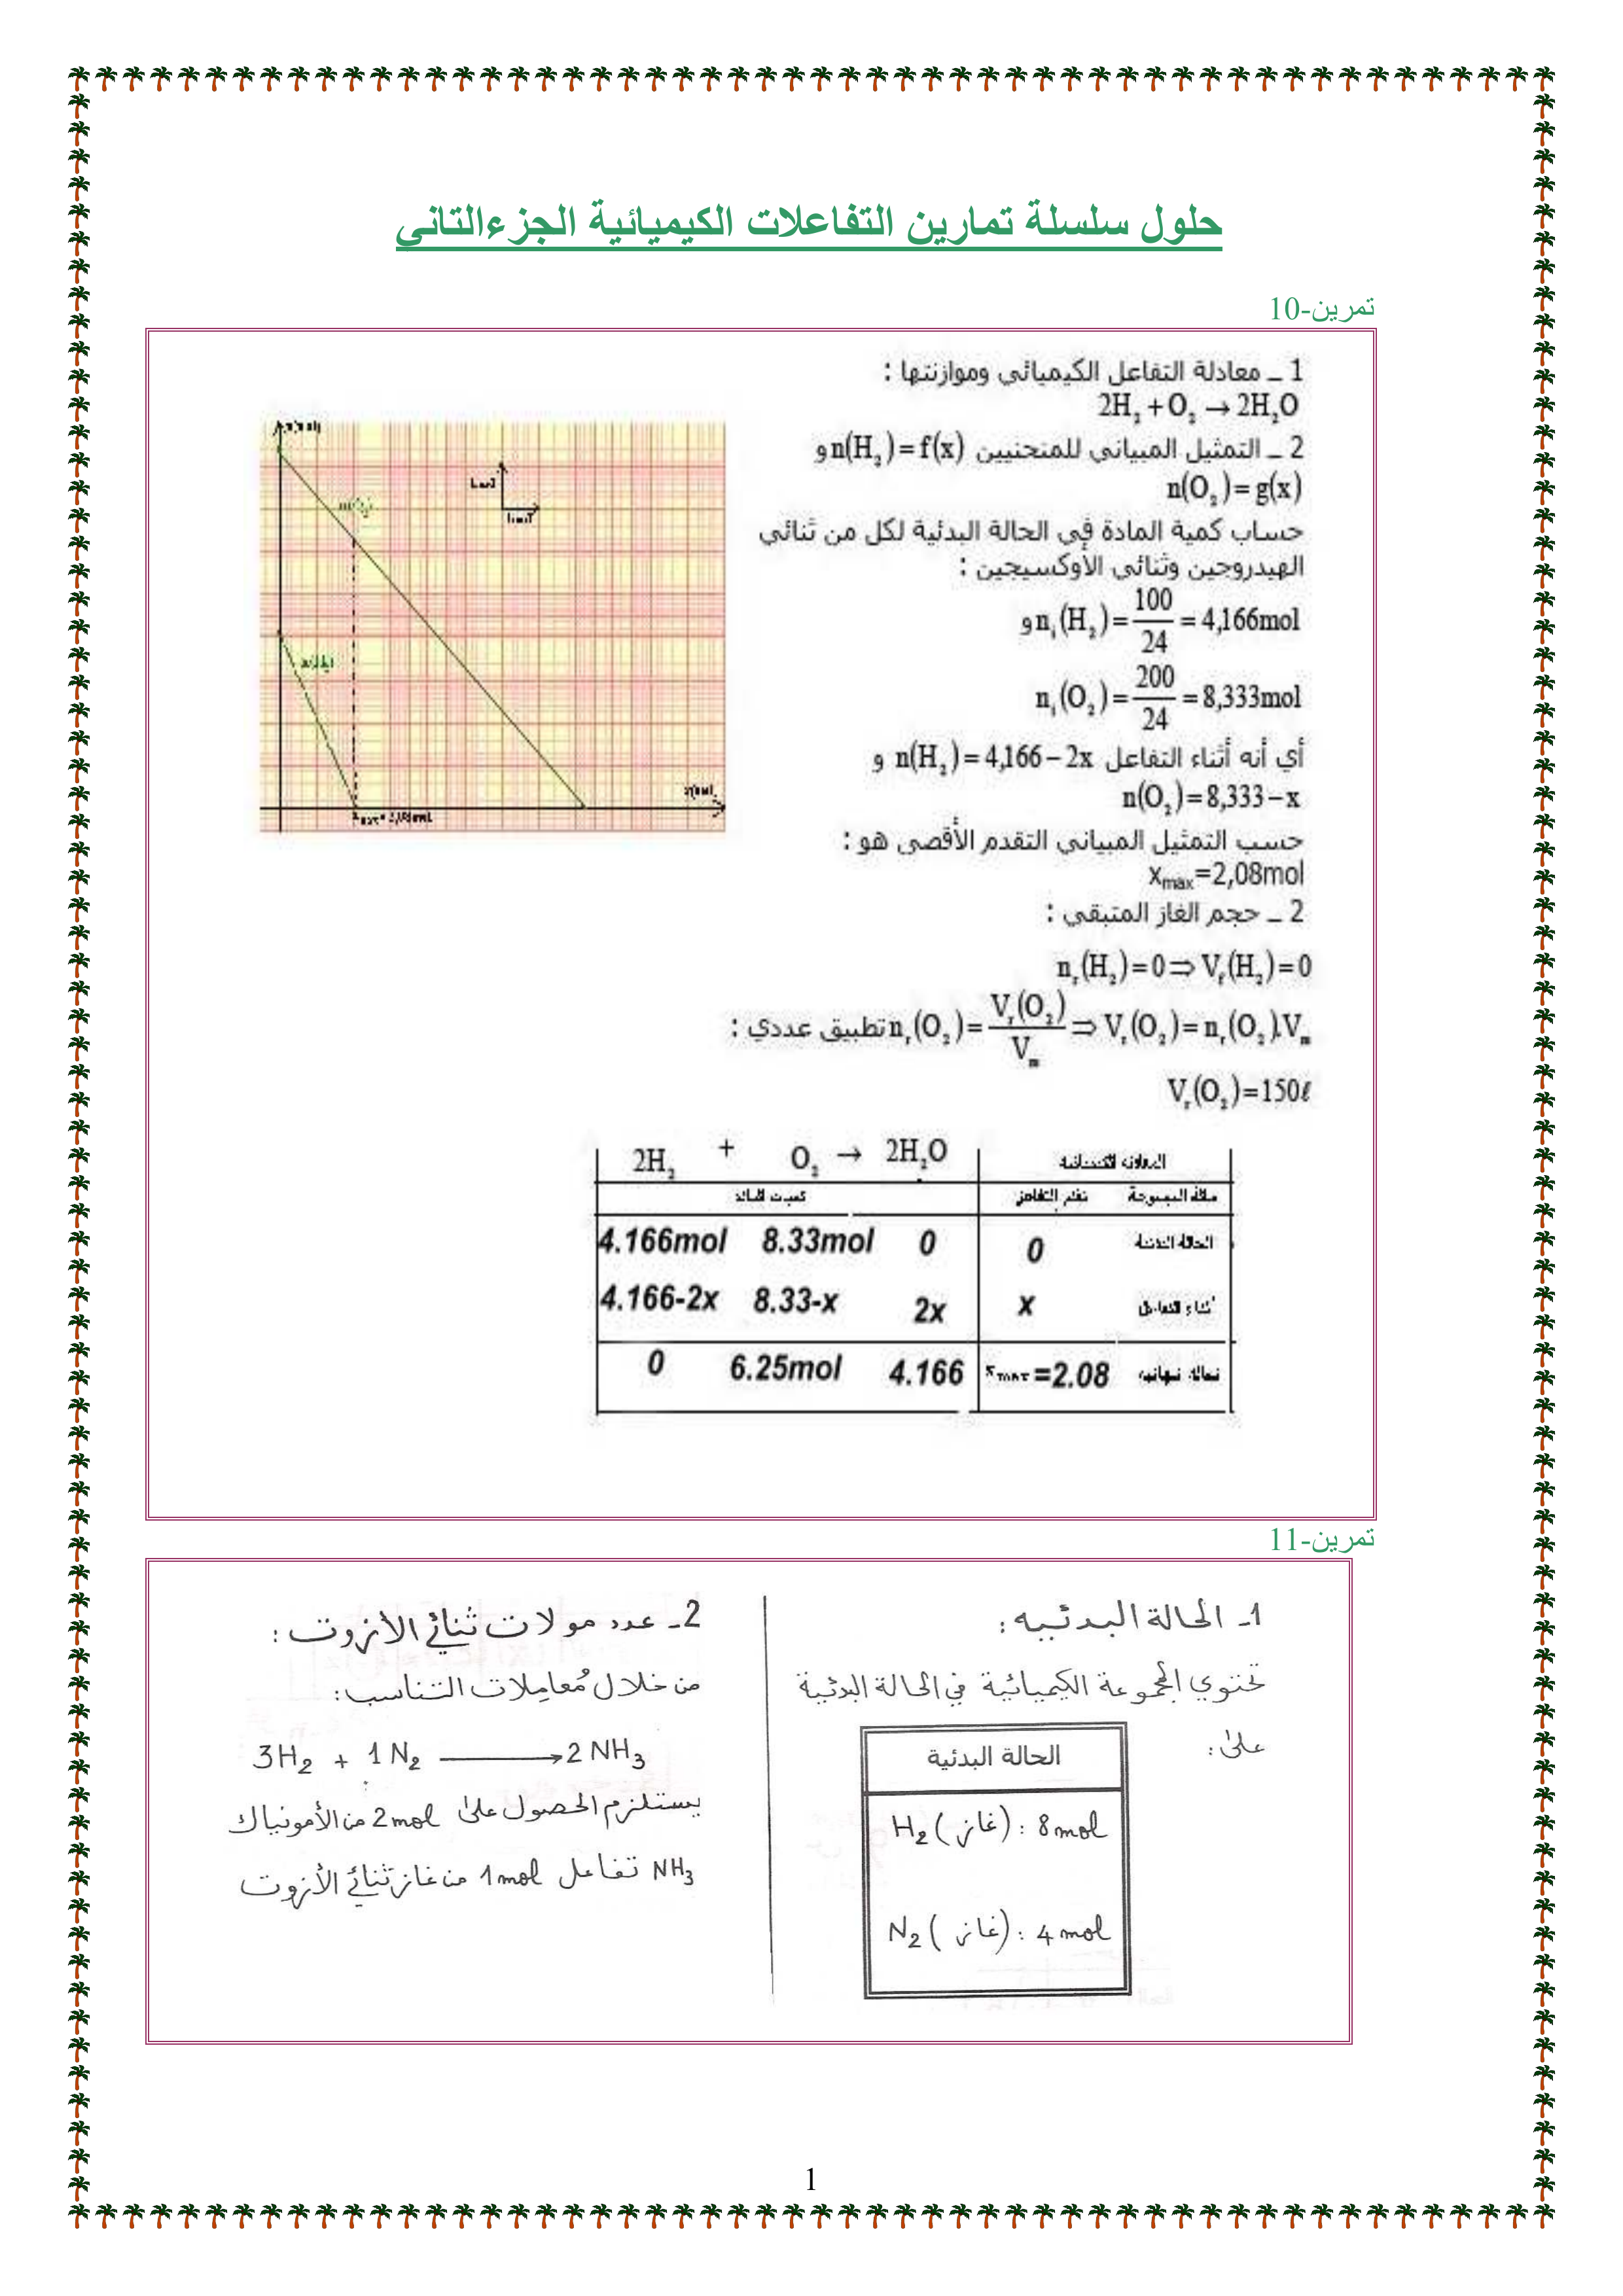 حلول سلسلة تمارين التفاعلات الكيميائية الجزءالتاني
تمرين-10
1 ـ معادلة التفاعل الكيميائي وموازنتها :
2H₂ + O₂ → 2H₂O
2 ـ التمثيل المبياني للمنحنيين n(H₂) = f(x) و
n(O₂) = g(x)
حساب كمية المادة في الحالة البدئية لكل من ثنائي
الهيدروجين وثنائي الأوكسيجين :
nᵢ(H₂) = 100/24 = 4,166mol و
nᵢ(O₂) = 200/24 = 8,333mol
أي أنه أثناء التفاعل n(H₂) = 4,166 – 2x و
n(O₂) = 8,333 – x
حسب التمثيل المبياني التقدم الأقصى هو :
xmax=2,08mol
2 ـ حجم الغاز المتبقي :
nᵣ(H₂) = 0 ⇒ Vᵣ(H₂) = 0
nᵣ(O₂) = Vᵣ(O₂)/Vₘ ⇒ Vᵣ(O₂) = nᵣ(O₂).Vₘ تطبيق عددي :
Vᵣ(O₂) = 150ℓ
2H₂ + O₂ → 2H₂O
4.166mol 8.33mol 0 0
4.166-2x 8.33-x 2x x
0 6.25mol 4.166 xmax =2.08
تمرين-11
1ـ الحالة البدئية :
تحتوي المجموعة الكيميائية في الحالة البدئية
على :
الحالة البدئية
H₂ (غاز) : 8 mol
N₂ (غاز) : 4 mol
2ـ عدد مولات ثنائي الأزوت :
من خلال مُعاملات التناسب :
3H₂ + 1N₂ ⟶ 2NH₃
يستلزم الحصول على 2mol من الأمونياك
NH₃ تفاعل 1mol من غاز ثنائي الأزوت
1